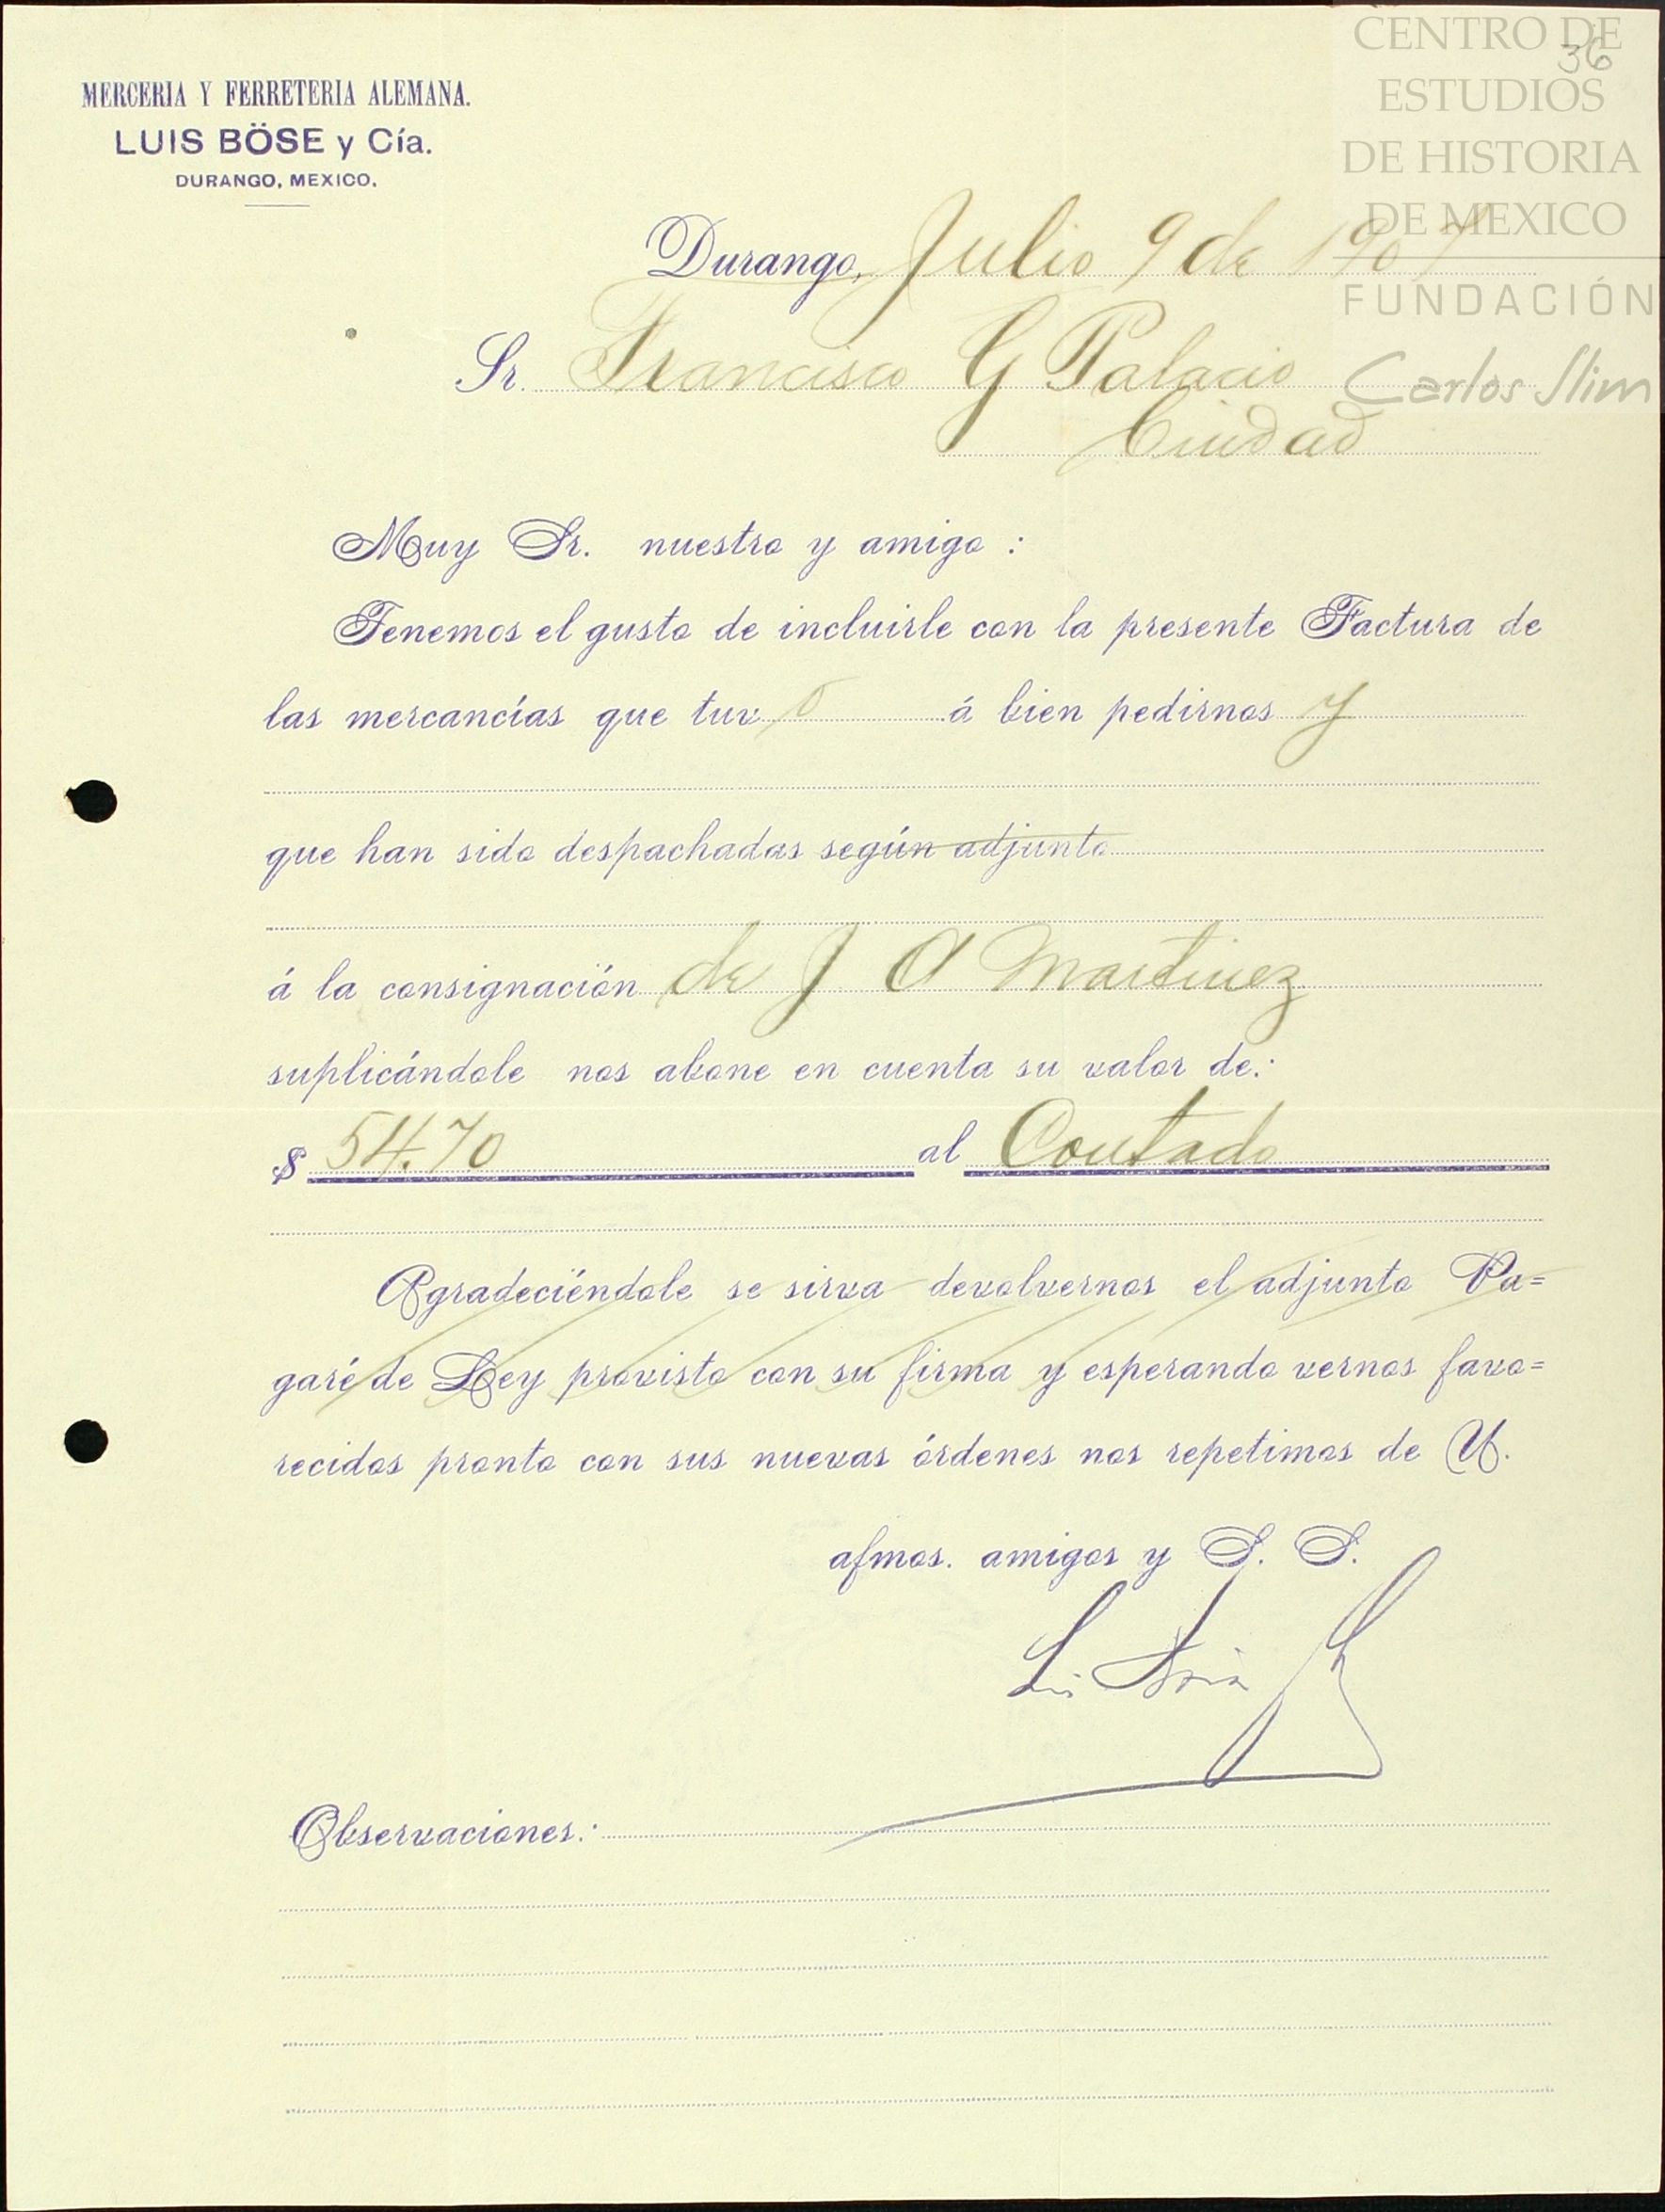 CENTRO DE
ESTUDIOS
DE HISTORIA
DE MEXICO
FUNDACIÓN
Carlos Slim
36
MERCERIA Y FERRETERIA ALEMANA.
LUIS BÖSE y Cía.
DURANGO, MEXICO.
Durango, Julio 9 de 1907
Sr. Francisco G Palacio
Ciudad
Muy Sr. nuestro y amigo :
Tenemos el gusto de incluirle con la presente Factura de
las mercancías que tuvo á bien pedirnos y
que han sido despachadas según adjunto
á la consignación de J A Martinez
suplicándole nos abone en cuenta su valor de:
$ 54.70 al Contado
Agradeciéndole se sirva devolvernos el adjunto Pa=
garé de Ley provisto con su firma y esperando vernos favo=
recidos pronto con sus nuevas órdenes nos repetimos de U.
afmos. amigos y S. S.
Observaciones: